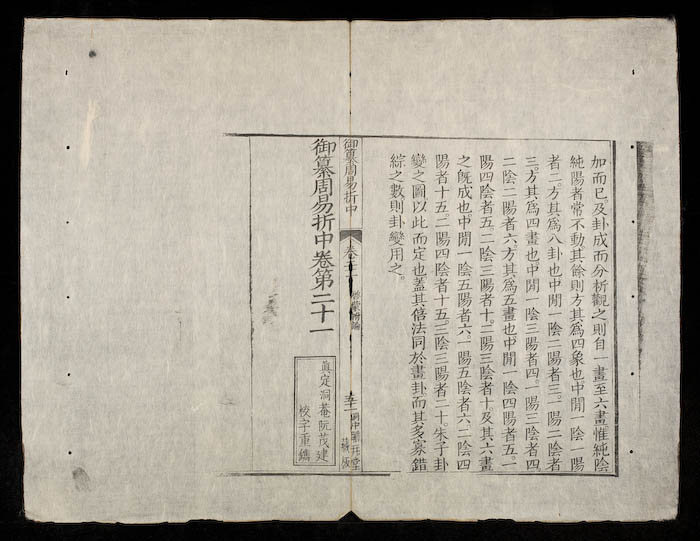 加而已及卦成而分析觀之則自一畫至六畫惟純陰
純陽者常不動其餘則方其為四象也中閒一陰一陽
者二方其為八卦也中閒一陰二陽者三一陽二陰者
三方其為四畫也中閒一陰三陽者四一陽三陰者四
二陰二陽者六方其為五畫也中閒一陰四陽者五一
陽四陰者五二陰三陽者十二陽三陰者十及其六畫
之旣成也中閒一陰五陽者六一陽五陰者六二陰四
陽者十五二陽四陰者十五三陰三陽者二十朱子卦
變之圖以此而定也蓋其倍法同於畫卦而其多寡錯
綜之數則卦變用之。
御纂周易折中
卷二十一
啓蒙附論
五十二
御纂周易折中卷第二十一
眞定洞菴阮茂建
校字重鐫